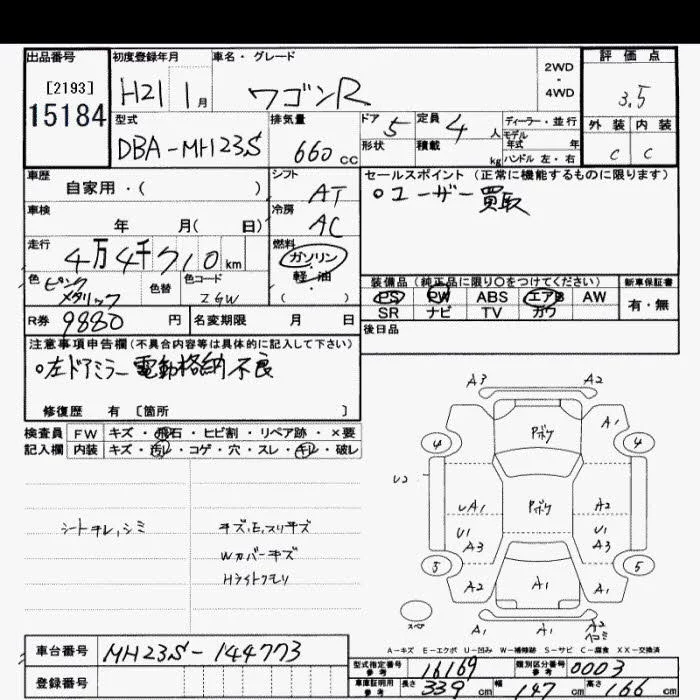 出品番号
[2193]
15184
初度登録年月
H21 1月
車名・グレード
ワゴンR
2WD
・
4WD
評価点
3.5
外装 内装
C C
型式
DBA-MH23S
排気量
660cc
ドア 5
形状
定員 4人
積載 kg
ディーラー・並行
モデル年式 年
ハンドル 左・右
車歴
自家用・( )
シフト
AT
セールスポイント (正常に機能するものに限ります)
○ユーザー買取
車検
年 月( 日)
冷房
AC
走行
4万4千710km
燃料
ガソリン
・
軽・油
( )
色
ピンクメタリック
色替
色コード
ZGW
装備品(純正品に限り○をつけてください)
PS PW ABS エアB AW
SR ナビ TV カワ
新車保証書
有・無
R券 9880円
名変期限 月 日
後日品
注意事項申告欄(不具合内容等は具体的に記入して下さい)
○左ドアミラー電動格納不良
修復歴 有 [箇所 ]
検査員記入欄
FW キズ・飛石・ヒビ割・リペア跡・×要
内装 キズ・汚レ・コゲ・穴・スレ・キレ・破レ
シートキレ,シミ
キズ,E,スリキズ
Wカバーキズ
Hライトクモリ
A3 A2
Pボケ
A1
4 4
U2
A1
Pボケ
A2
U1
A3
U1
A3
5 5
A2
A1
A1
スペア
A1 A1 A2
A-キズ E-エクボ U-凹み W-補修跡 S-サビ C-腐食 XX-交換済
車台番号
MH23S-144773
登録番号
型式指定番号
参考
16169
類別区分番号
参考
0003
車庫証明用
参考
長さ 339cm
幅 147cm
高さ 166cm